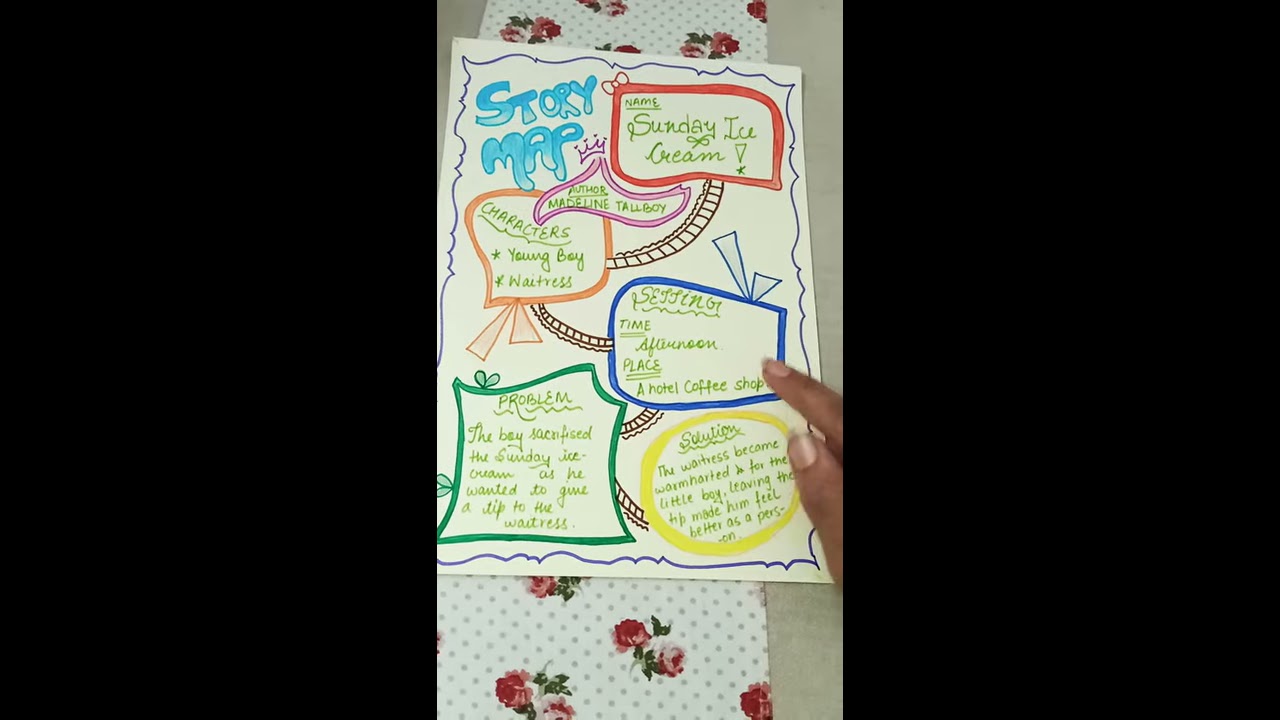 STORY
MAP
NAME
Sunday Ice
Cream
AUTHOR
MADELINE TALLBOY
CHARACTERS
* Young Boy
* Waitress
SETTING
TIME
Afternoon.
PLACE
A hotel Coffee shop
PROBLEM
The boy sacrifised
the Sunday ice-
cream as he
wanted to give
a tip to the
waitress.
Solution
The waitress became
warmharted for the
little boy, leaving the
tip made him feel
better as a pers-
-on.